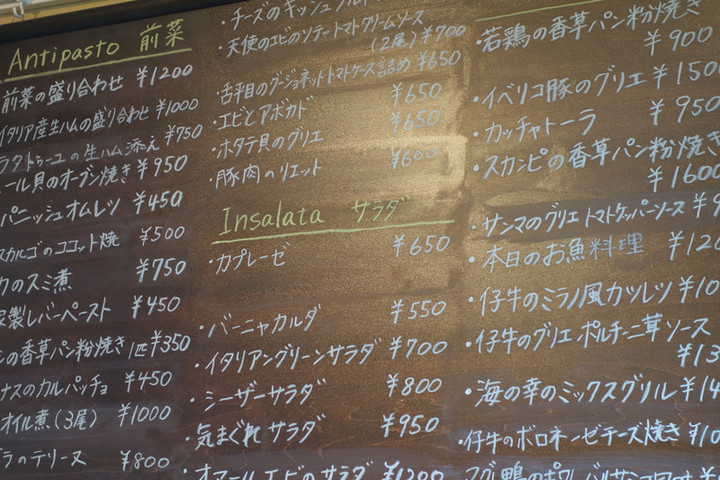 Antipasto 前菜
前菜の盛り合わせ ¥1200
イタリア産生ハムの盛り合わせ ¥1000
ラタトゥーユの生ハム添え ¥750
ール貝のオーブン焼き ¥950
パニッシュオムレツ ¥450
スカルゴのココット焼 ¥500
のスミ煮 ¥750
製レバーペースト ¥450
の香草パン粉焼き 1匹 ¥350
ナスのカルパッチョ ¥450
オイル煮(3尾) ¥1000
ラのテリーヌ ¥800
・チーズのキッシュ
・天使のエビのソテートマトクリームソース
(2尾) ¥700
・舌平目のグージョネットトマトケース詰め ¥650
・エビとアボカド ¥650
・ホタテ貝のグリエ ¥650
・豚肉のリエット ¥600
Insalata サラダ
・カプレーゼ ¥650
・バーニャカルダ ¥550
・イタリアングリーンサラダ ¥700
・シーザーサラダ ¥800
・気まぐれサラダ ¥950
・オマールエビのサラダ ¥1200
若鶏の香草パン粉焼き
¥900
・イベリコ豚のグリエ ¥1500
・カッチャトーラ ¥950
・スカンピの香草パン粉焼き
¥1600
・サンマのグリエ トマトケッパーソース ¥9
・本日のお魚料理 ¥120
・仔牛のミラノ風カツレツ ¥10
・仔牛のグリエ ポルチーニ茸ソース
¥13
・海の幸のミックスグリル ¥14
・仔牛のボロネーゼチーズ焼き ¥10